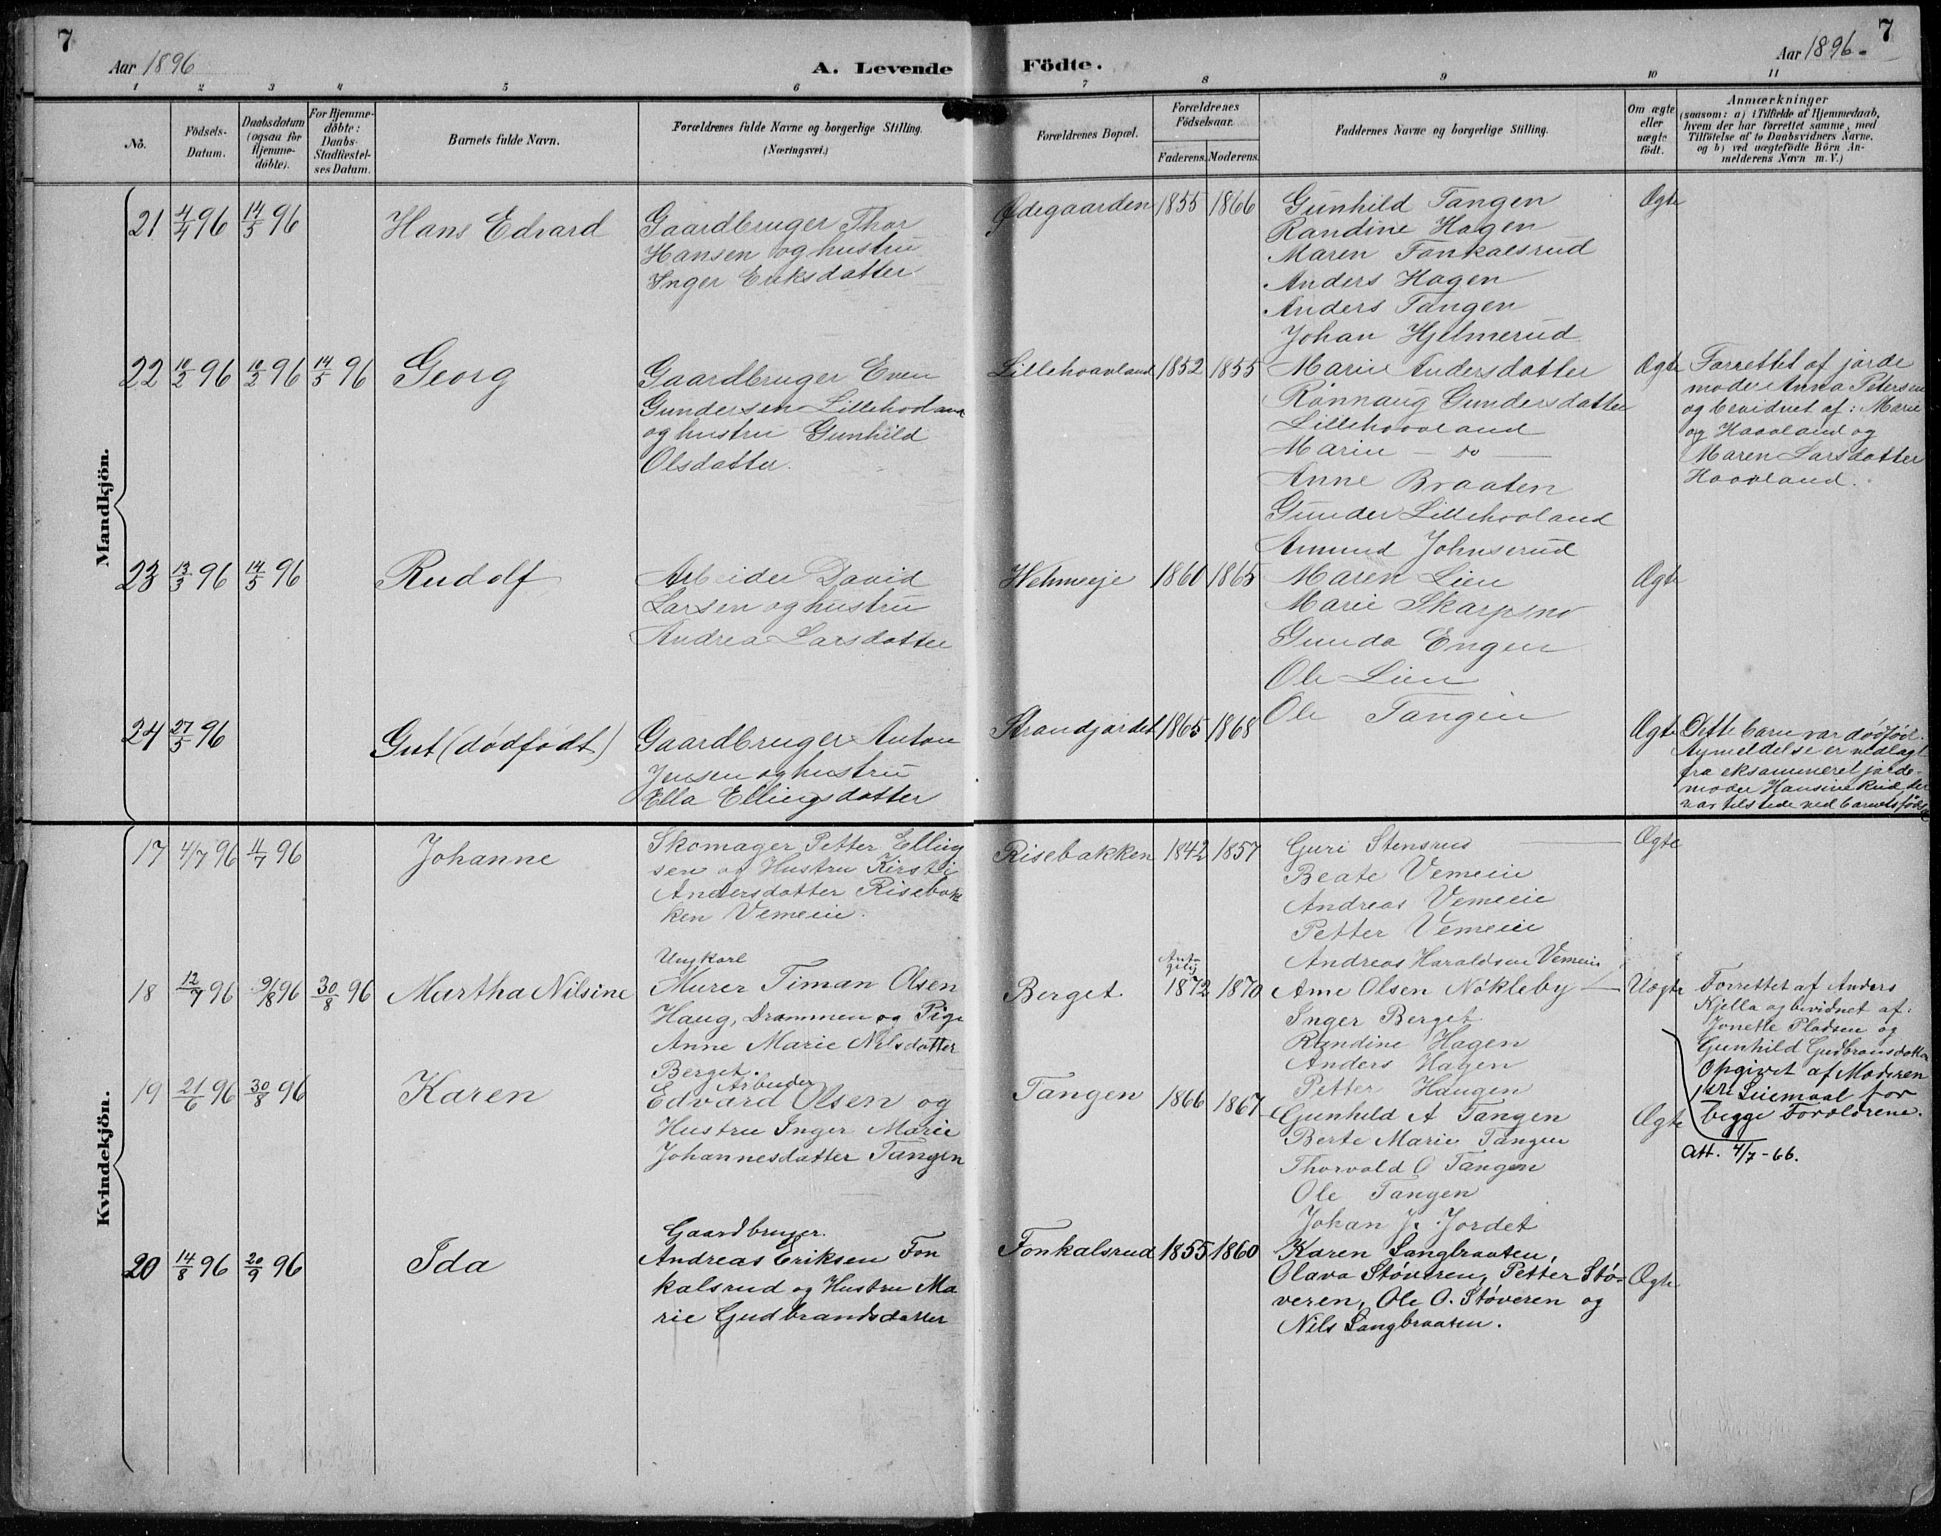 7
Aar 1896
A. Levende Födte.
Aar 1896.
7
1 2 3 4 5 6 7 8 9 10 11
No.
Födsels-
Datum.
Daabsdatum
(ogsaa för
Hjemme-
döbte).
For Hjemme-
döbte:
Daabs-
Stadfæstel-
ses Datum.
Barnets fulde Navn.
Forældrenes fulde Navne og borgerlige Stilling.
(Næringsvei.)
Forældrenes Bopæl.
Forældrenes
Födselsaar.
Faderens. Moderens.
Faddernes Navne og borgerlige Stilling.
Om ægte
eller
uægte
født.
Anmærkninger
(saasom: a) i Tilfælde af Hjemmedaab,
hvem der har forrettet samme, med
Tilföielse af to Daabsvidners Navne.
og b) ved uægtefödte Börn An-
melderens Navn m. V.)
Mandkjön.
21 4/4 96 14/5 96 Hans Edvard
Gaardbruger Thor
Hansen og hustru
Inger Eriksdatter
Ødegaarden 1855 1866
Gunhild Tangen
Randine Hagen
Maren Fonkalsrud
Anders Hagen
Anders Tangen
Johan Hjelmerud
Ægte
22 12/2 96 12/2 96 14/5 96 Georg
Gaardbruger Even
Gundersen Lillehovland
og hustru Gunhild
Olsdatter.
Lillehaavland 1852 1855
Marie Andersdatter
Rønnaug Gundersdatter
Lillehovland
Marie - do -
Anne Braaten
Gunder Lillehovland
Amund Johnsrud
Ægte
Forrettet af jorde
moder Anna Petersen
og bevidnet af: Marie
og Haavland og
Maren Larsdatter
Haavland.
23 13/3 96 14/5 96 Rudolf
Arbeider David
Larsen og hustru
Andrea Larsdatter
Wehmeeje 1860 1865
Maren Lien
Marie Skarpsno
Gunda Engen
Ole Lien
Ole Tangen
Ægte
24 27/5 96 Gut (dødfødt)
Gaardbruger Anton
Jensen og hustru
Ella Ellingsdatter
Strandjordet 1865 1868
Ægte
Dette barn var dødfød.
Anmeldelse er nedlagt
fra eksamineret jorde-
moder Hansine Ruud, der
var tilstede ved barnets føds
Kvindekjön.
17 4/7 96 4/7 96 Johanne
Skomager Petter Elling
sen og Hustru Kirsti
Andersdatter Risebak
ken Vemeie.
Risebakken 1842 1857
Guri Stensrud
Beate Vemeie
Andreas Vemeie
Petter Vemeie
Andreas Haraldsen Vemeie
Ægte
18 12/7 96 9/8 96 30/8 96 Martha Nilsine
Ungkarl
Murer Timan Olsen
Haug, Drammen og Pige
Anne Marie Nilsdatter
Berget.
Berget
1872 1870
Arne Olsen Nøkleby
Inger Berget
Randine Hagen
Anders Hagen
Petter Haugen
Uægte
Forrettet af Anders
Kjella og bevidnet af:
Jonette Pladsen og
Gunhild Gudbransdatter
Opgivet af Moderen
1ste Leiemaal for
begge Forældrene.
Att. 4/7-66.
19 21/6 96 30/8 96 Karen
Arbeider
Edvard Olsen og
Hustru Inger Marie
Johannesdatter Tangen
Tangen 1866 1867
Gunhild A Tangen
Berte Marie Tangen
Thorvald O Tangen
Ole Tangen
Johan J. Jordet
Ægte
20 14/8 96 20/9 96 Ida
Gaardbruger.
Andreas Eriksen Fon
kalsrud og Hustru Ma
rie Gudbrandsdatter
Fonkalsrud 1855 1860
Karen Langbraaten,
Olava Støveren, Petter Stø-
veren, Ole O. Støveren og
Nils Langbraaten.
Ægte